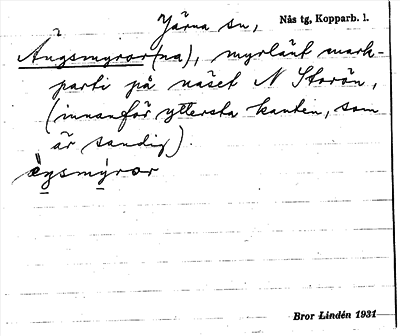 Järna sn, Nås tg, Kopparb. l.
Ängsmyror(na), myrlänt mark-
parti på näset N Storön,
(innanför yttersta kanten, som
är sandig).
ä̀ṇsmy̱ror
Bror Lindén 1931